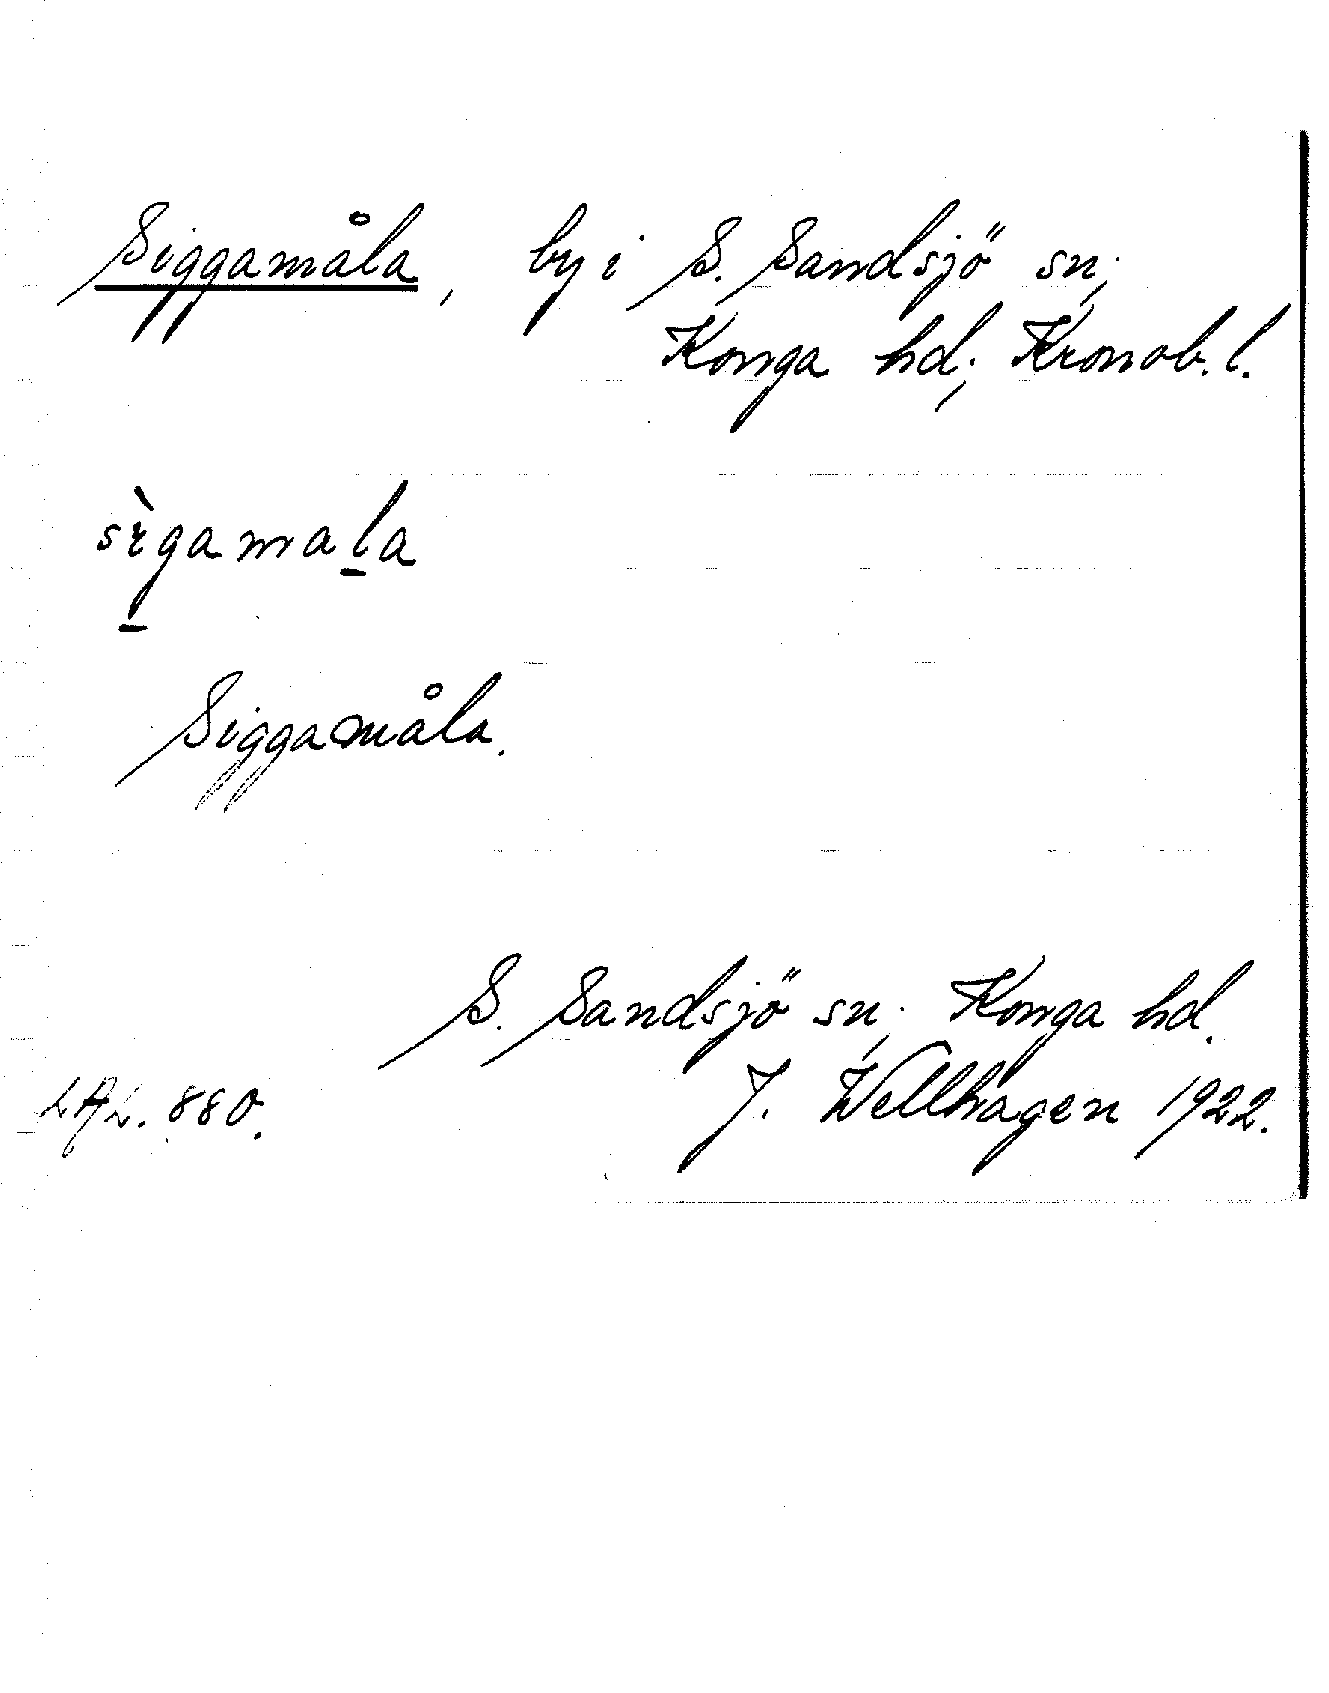 Siggamåla, by i S. Sandsjö sn;
Konga hd; Kronob. l.
sìgamala
Siggamåla.
S. Sandsjö sn; Konga hd.
LAL. 880.
J. Wellhagen 1922.